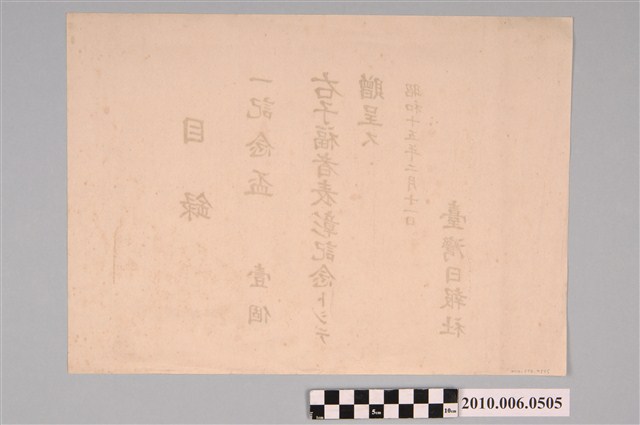 目録
一記念盃 壹個
右子福者表彰記念トシテ
贈呈ス
昭和十五年二月十一日
臺灣日報社
5cm
10cm
2010.006.0505